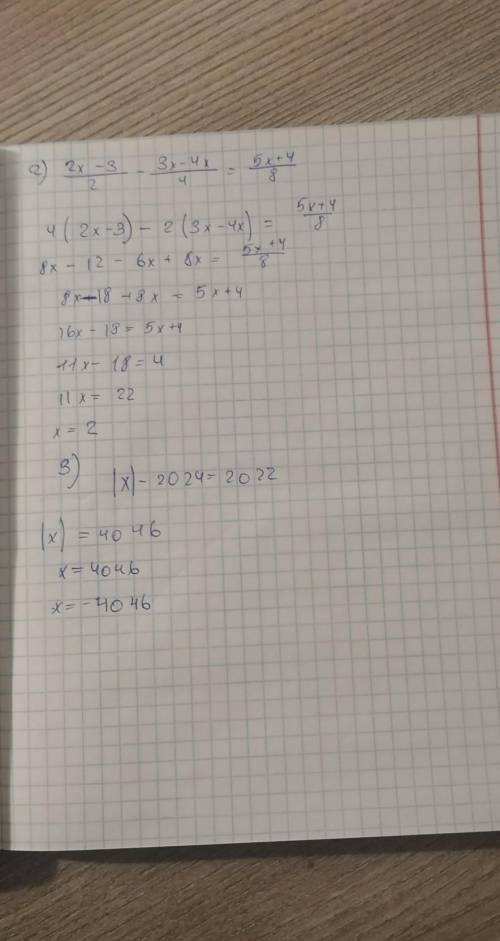 a) (2x-3)/2 - (3x-4x)/4 = (5x+4)/8
4(2x-3) - 2(3x-4x) = (5x+4)/8
8x - 12 - 6x + 8x = (5x+4)/8
8x-18+8x = 5x+4
16x-18 = 5x+4
11x - 18 = 4
11x = 22
x = 2
3) |x| - 2024 = 2022
|x| = 4046
x = 4046
x = -4046